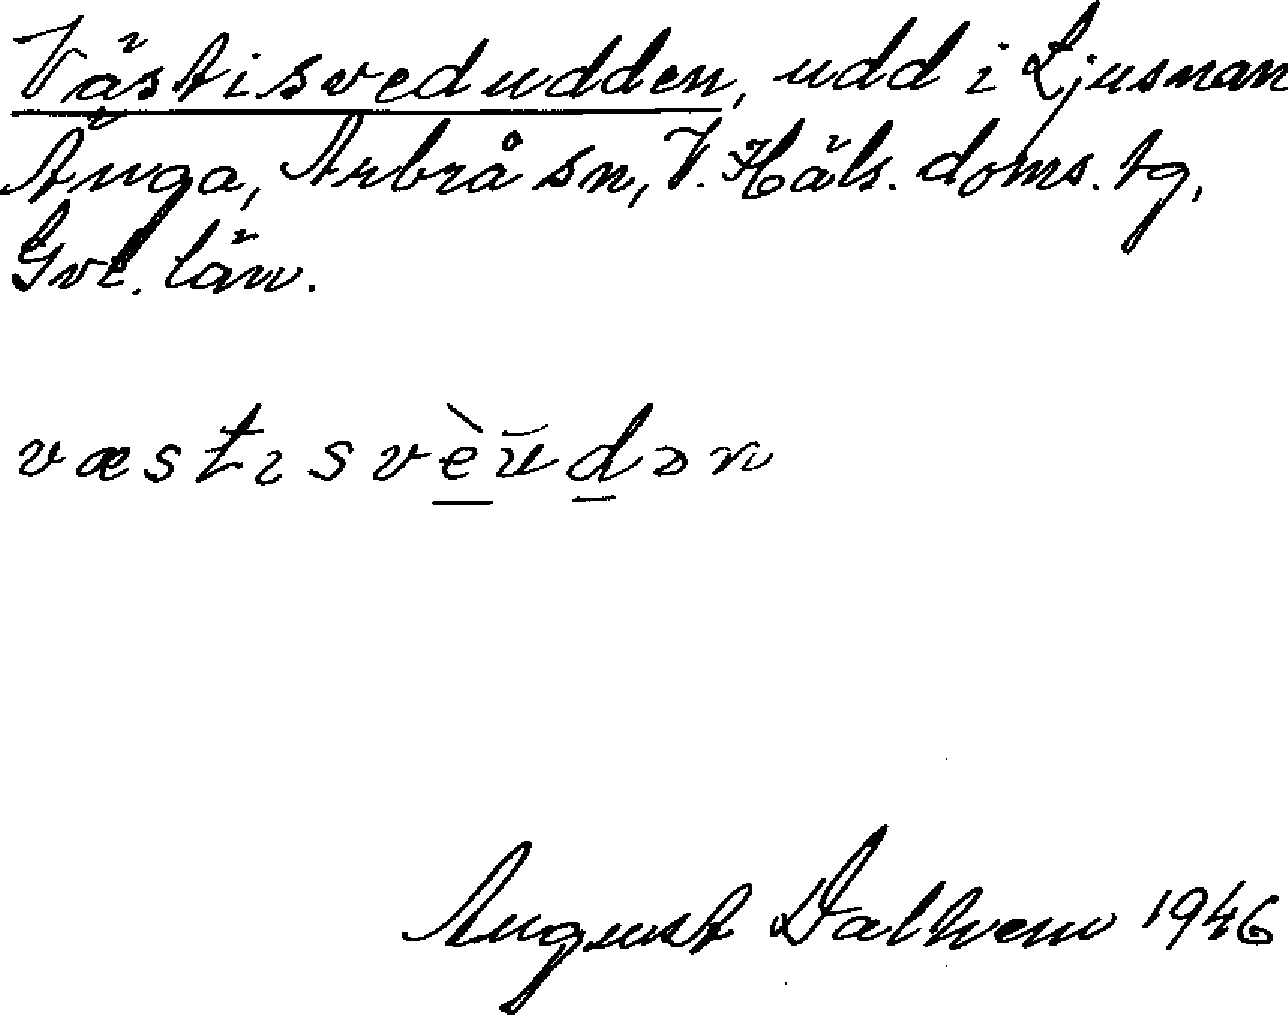 Västisvedudden, udd i Ljusnan
Änga, Arbrå sn, V. Häls. doms. tg,
Gvl. län.
væstɩsvèŭdən
August Dalhem 1946